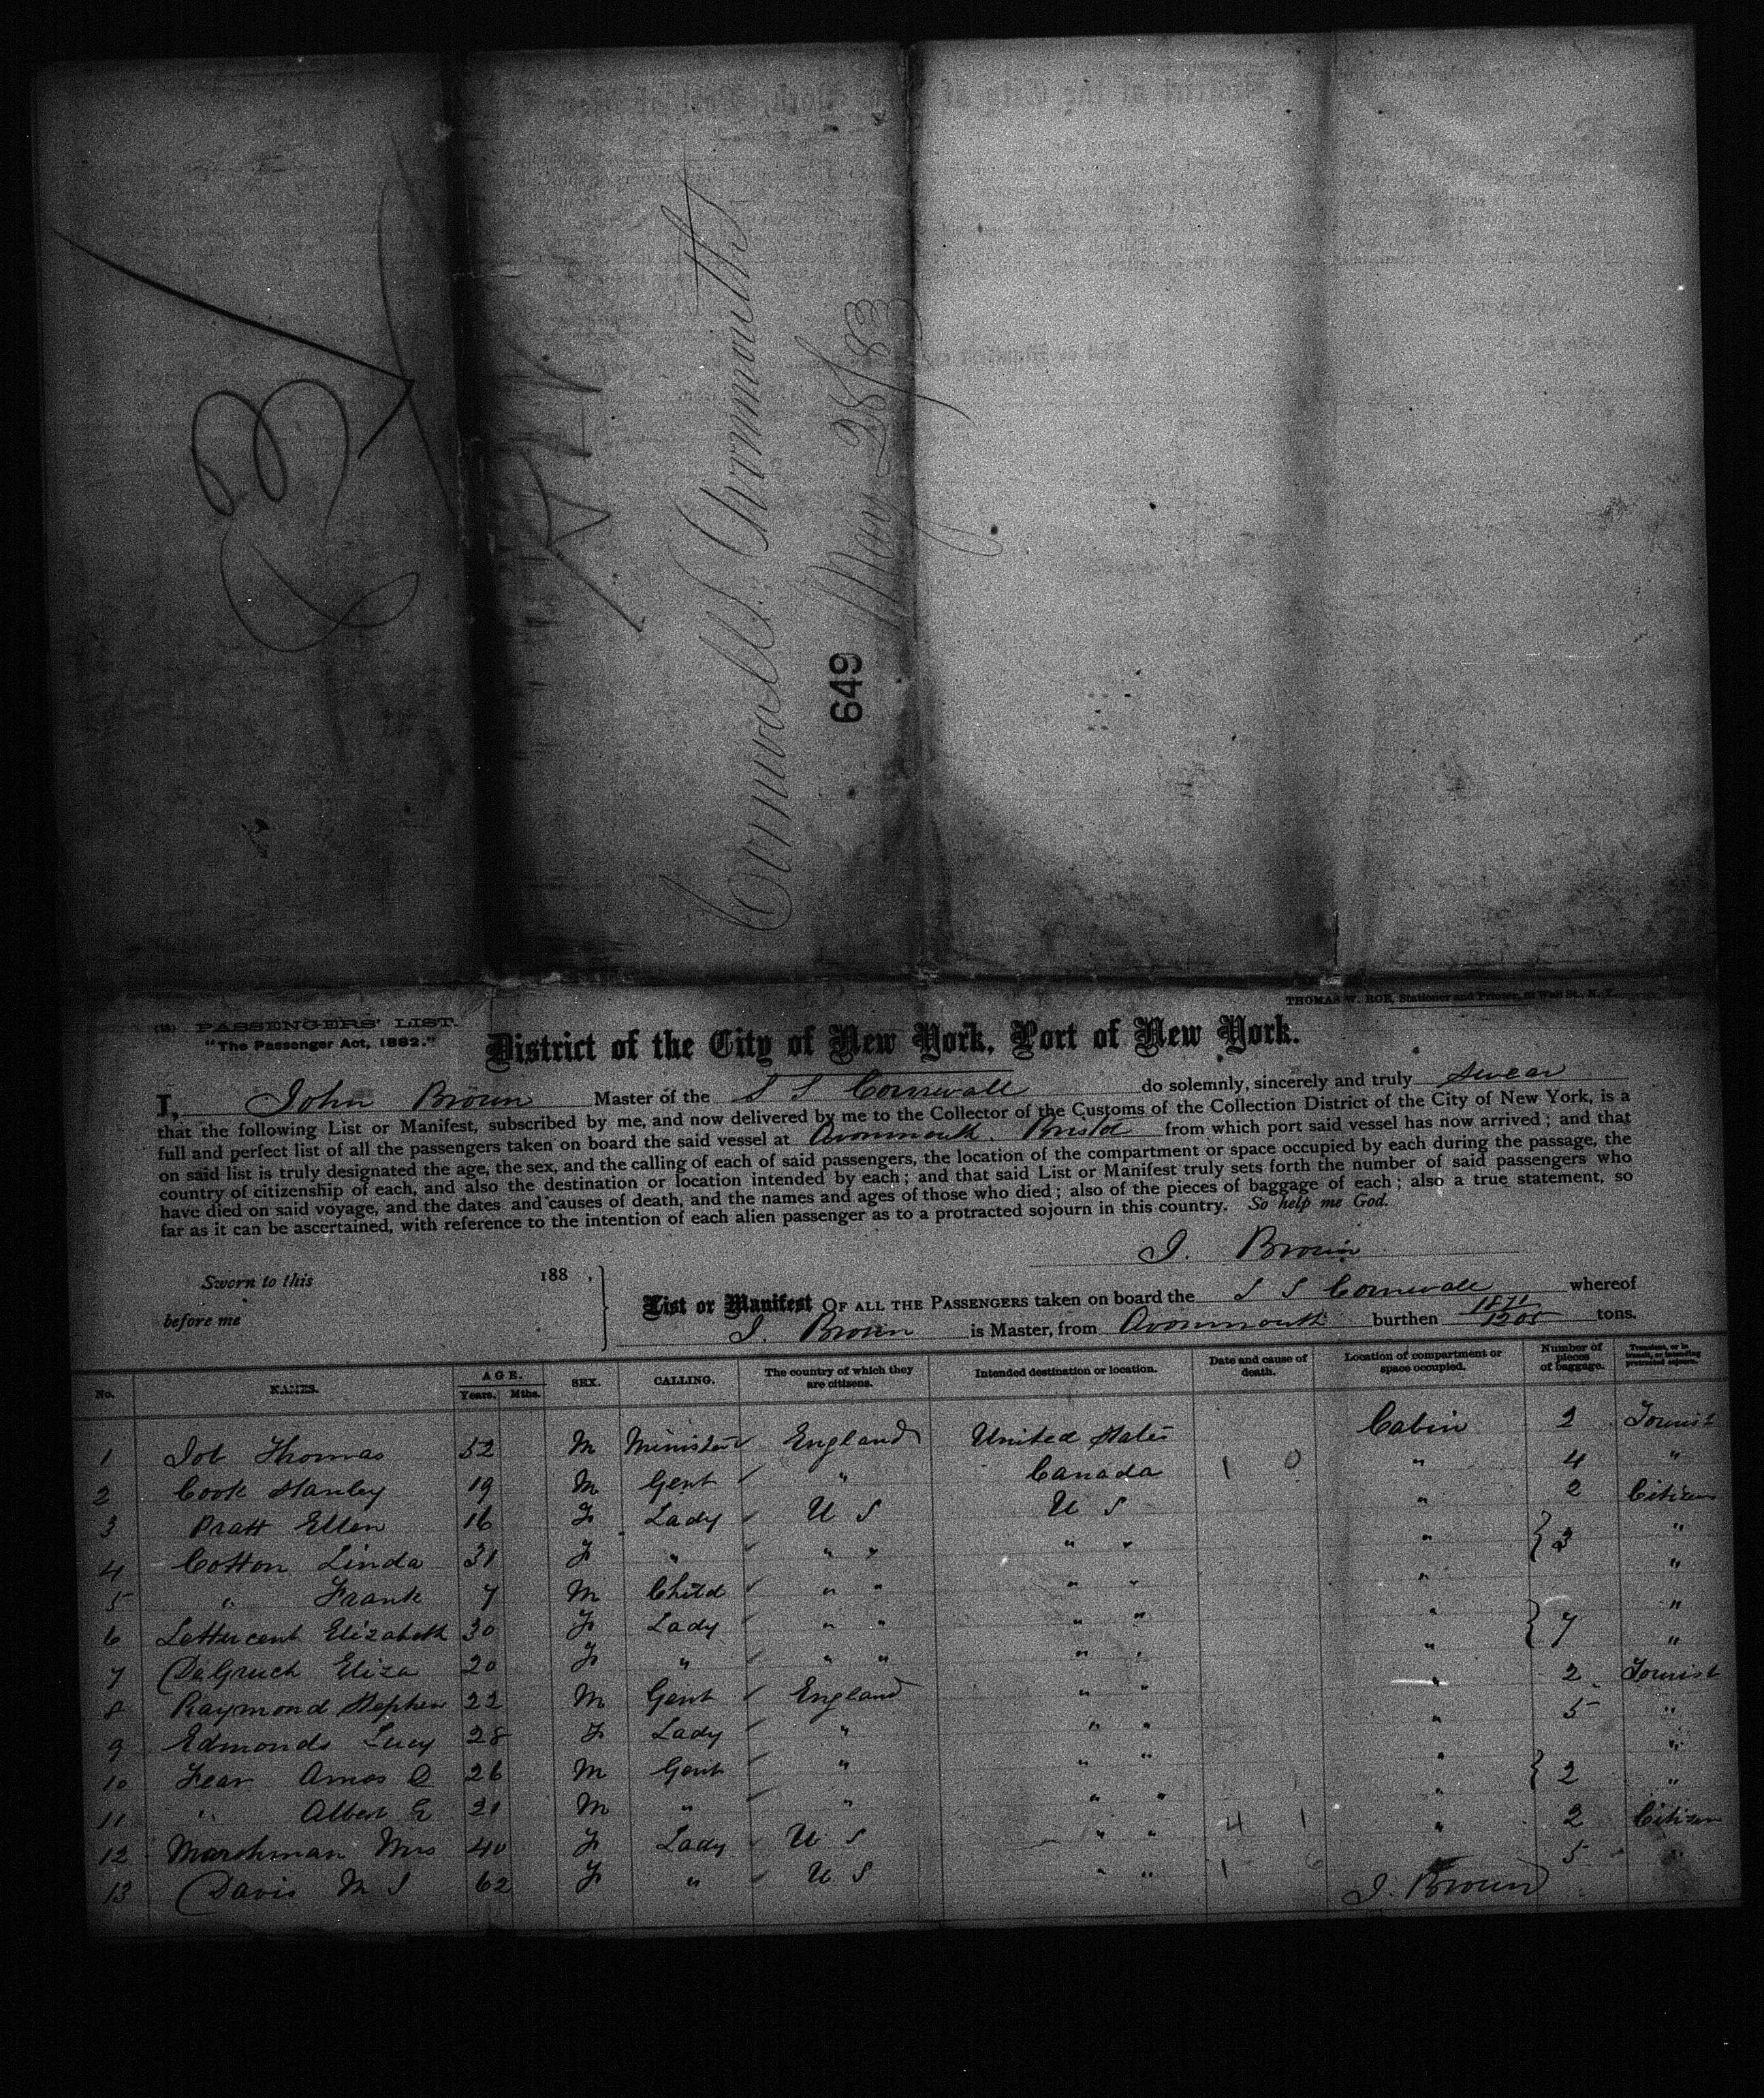 Cornwall. Avonmouth
May 28/83
649
THOMAS W. ROE, Stationer and Printer, Wall St., N. Y.
PASSENGERS' LIST.
"The Passenger Act, 1882."
District of the City of New York, Port of New York.
I, John Brown Master of the S S Cornwall do solemnly, sincerely and truly swear
that the following List or Manifest, subscribed by me, and now delivered by me to the Collector of the Customs of the Collection District of the City of New York, is a
full and perfect list of all the passengers taken on board the said vessel at Avonmouth. Bristol from which port said vessel has now arrived; and that
on said list is truly designated the age, the sex, and the calling of each of said passengers, the location of the compartment or space occupied by each during the passage, the
country of citizenship of each, and also the destination or location intended by each; and that said List or Manifest truly sets forth the number of said passengers who
have died on said voyage, and the dates and causes of death, and the names and ages of those who died; also of the pieces of baggage of each; also a true statement, so
far as it can be ascertained, with reference to the intention of each alien passenger as to a protracted sojourn in this country. So help me God.
J. Brown
Sworn to this 188 ,
before me
List or Manifest OF ALL THE PASSENGERS taken on board the S S Cornwall whereof
J. Brown is Master, from Avonmouth burthen 1871 1205 tons.
No. NAMES. AGE. Years. Mths. SEX. CALLING. The country of which they are citizens. Intended destination or location. Date and cause of death. Location of compartment or space occupied. Number of pieces of baggage. Transient, or in transit, or intending protracted sojourn.
1 Job Thomas 52 M Minister England United States Cabin 2 Tourist
2 Cook Stanley 19 M Gent " Canada 1 0 " 4 "
3 Pratt Ellen 16 F Lady U S U S " 2 Citizen
4 Cotton Linda 31 F " " " " " " 3 "
5 " Frank 7 M Child " " " " " "
6 Elizabeth 30 F Lady " " " " " 7 "
7 DeGruch Eliza 20 F " " " " " " "
8 Raymond Stephen 22 M Gent England " " " 2 Tourist
9 Edmonds Lucy 28 F Lady " " " " 5 "
10 Fear Amos 26 M Gent " " " " 2 "
11 " Albert E 21 M " " " " " "
12 Marshman Mrs 40 F Lady U S " " 4 1 " 2 Citizen
13 Davis M J 62 F " U S " " 1 6 5 "
J. Brown